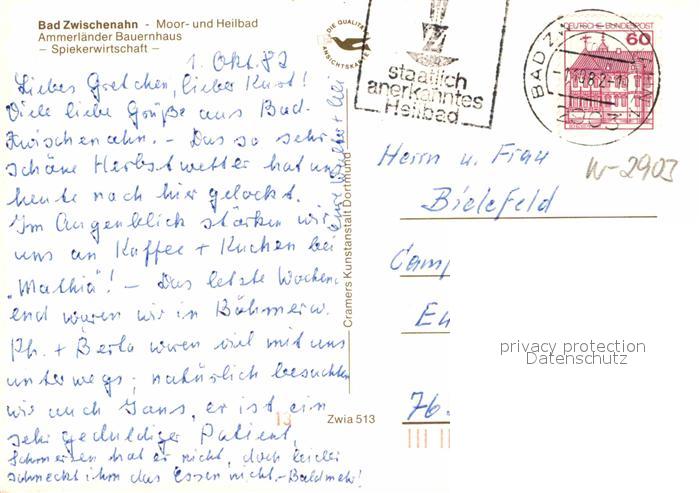 Bad Zwischenahn - Moor- und Heilbad
Ammerländer Bauernhaus
- Spiekerwirtschaft -
DIE QUALITÄTS
ANSICHTSKARTE
staatlich
anerkanntes
Heilbad
DEUTSCHE BUNDESPOST
60
BAD ZW
2903
1. Okt. 82
Liebes Gretchen, lieber Kurt!
Viele liebe Grüße aus Bad-
Zwischenahn. - Das so sehr
schöne Herbstwetter hat uns
heute nach hier gelockt.
Im Augenblick stärken wir
uns an Kaffee + Kuchen bei
! - Das letzte Wochen-
end waren wir in Böhmerw.
Ph. + Berta waren viel mit uns
unterwegs; natürlich besuchten
wir auch Hans, er ist ein
sehr geduldiger Patient,
Schmerzen hat er nicht, doch leider
schmeckt ihm das Essen nicht. - Bald mehr!
Cramers Kunstanstalt Dortmund
Zwia 513
13
Herrn u. Frau
Bielefeld
W-2903
Camp
76.
privacy protection
Datenschutz